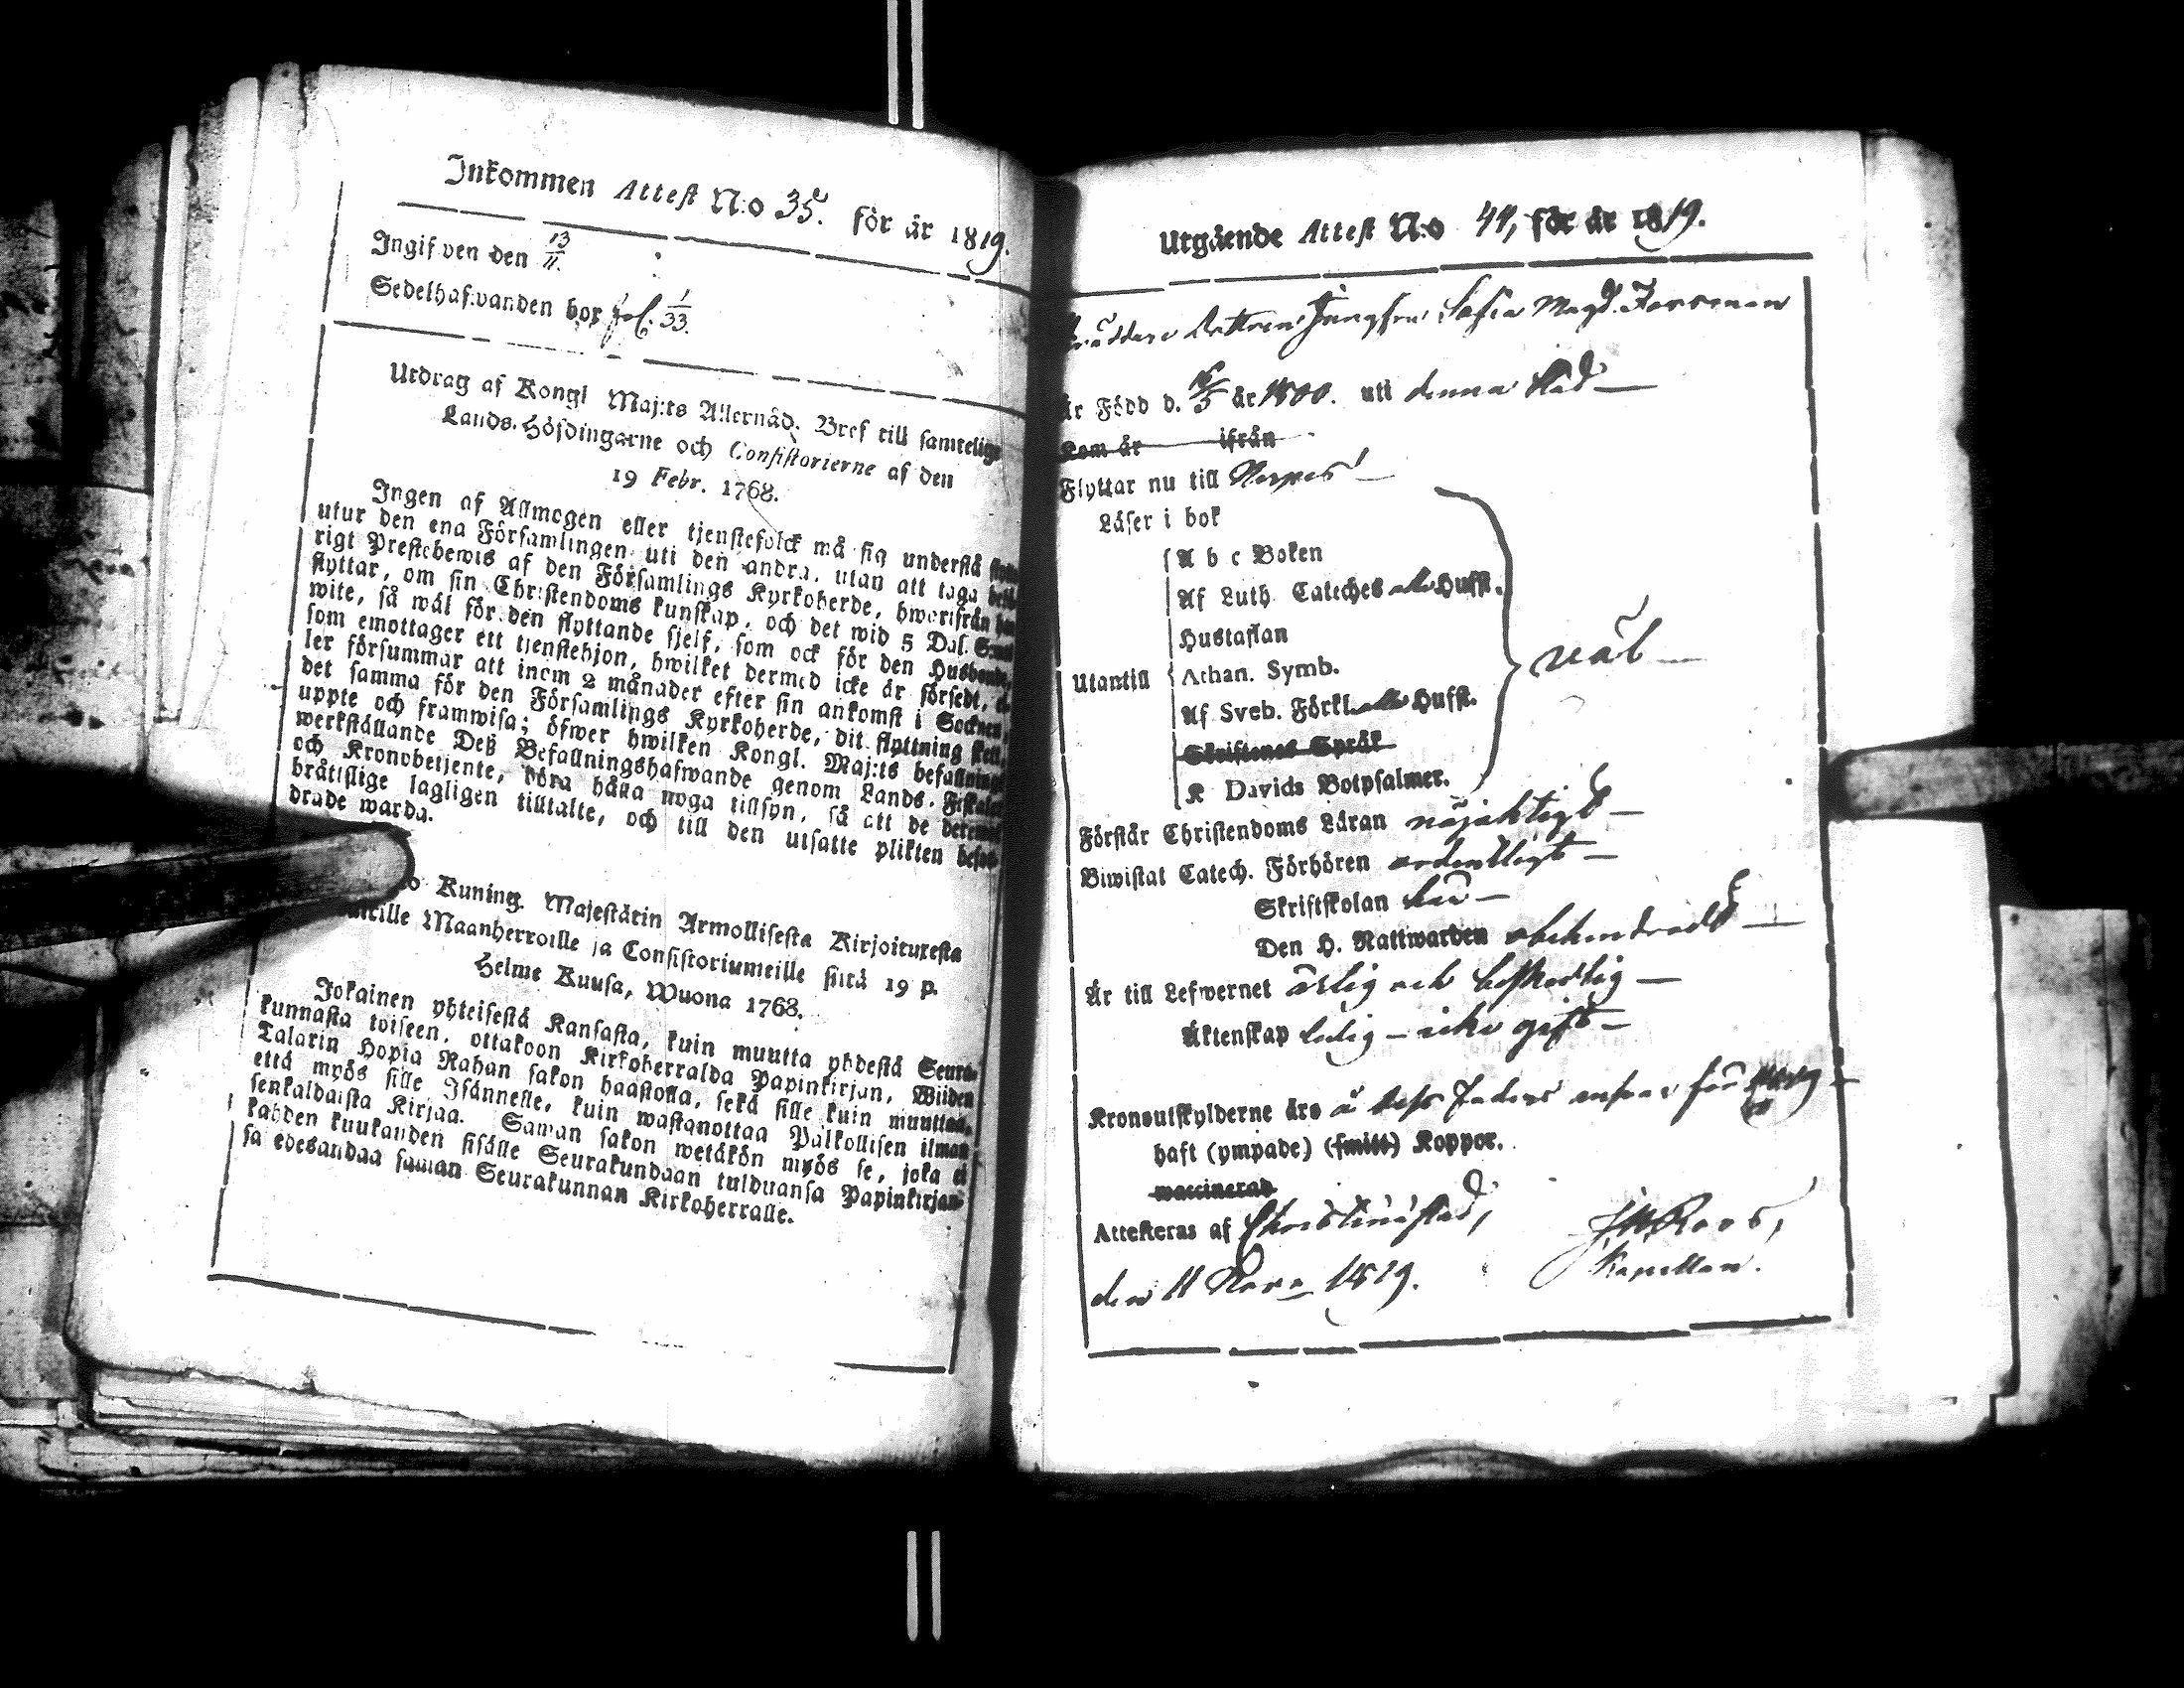 Inkommen Attest N:o 35. för år 1819.
Ingifven den 13/11.
Sedelhafwanden bor fol. 1/33.
Utdrag af Kongl Maj:ts Allernåd. Bref till samtelige
Lands-Höfdingarne och Consistorierne af den
19 Febr. 1768.
Ingen af Allmogen eller tjenstefolck må sig understå
utur den ena Församlingen uti den andra, utan att taga
rigt Prestebewis af den Församlings Kyrkoherde, hworifrån han
flyttar, om sin Christendoms kunskap, och det wid 5 Dal. Smt
wite, så wäl för den flyttande sjelf, som ock för den Husbonde,
som emottager ett tjenstehjon, hwilket dermed icke är försedt, el-
ler försummar att inom 2 månader efter sin ankomst i Socknen,
det samma för den Församlings Kyrkoherde, dit flyttning skett,
uppte och framwisa; öfwer hwilken Kongl. Maj:ts befallnings
werkställande Deß Befallningshafwande genom Lands-Fiskaler
och Kronobetjente, böra hålla noga tillsyn, så att de deremot
bråttslige lagligen tilltalte, och till den utsatte plikten befor-
drade warda.
Kuning. Majestätin Armollisesta Kirjoituxesta
Maanherroille ja Consistoriumeille siitä 19 p.
Helme Kuusa, Wuona 1768.
Jokainen yhteisestä Kansasta, kuin muutta yhdestä Seura-
kunnasta toiseen, ottakoon Kirkoherralda Papinkirjan, Wiiden
Talarin Hopia Rahan sakon haastolla, sekä sille kuin muuttaa,
että myös sille Isännelle, kuin wastanottaa Palkollisen ilman
senkaldaista Kirjaa. Saman sakon wetäkön myös se, joka ei
kahden kuukauden sisälle Seurakundaan tulduansa Papinkirjan-
sa edesandaa saman Seurakunnan Kirkoherralle.
Utgående Attest N:o 44, för år 1819.
Dottren Jungfru Sofia Magd. Forsman
är Född d. 16/5 år 1800. uti denna stad
kom år ifrån
Flyttar nu till Nerpes
Läser i bok
A b c Boken
Af Luth. Cateches alla Hufst.
Hustaflan
Utantill Athan. Symb. väl
Af Sveb. Förkl. alla Hufst.
Skriftenes Språk
K Davids Botpsalmer.
Förstår Christendoms Läran nöjaktigt
Biwistat Catech. Förhören ordentligt
Skriftskolan här
Den H. Nattwarden obehindradt
Är till Lefwernet ärlig och beskedlig
Äktenskap ledig – icke gift
Kronoutskylderne äro å dess Faders för 1819
haft (ympade) (smitt) Koppor.
waccinerad
Attesteras af Christinæstad,
den 11 Nov. 1819.
Roos,
Kapellan.